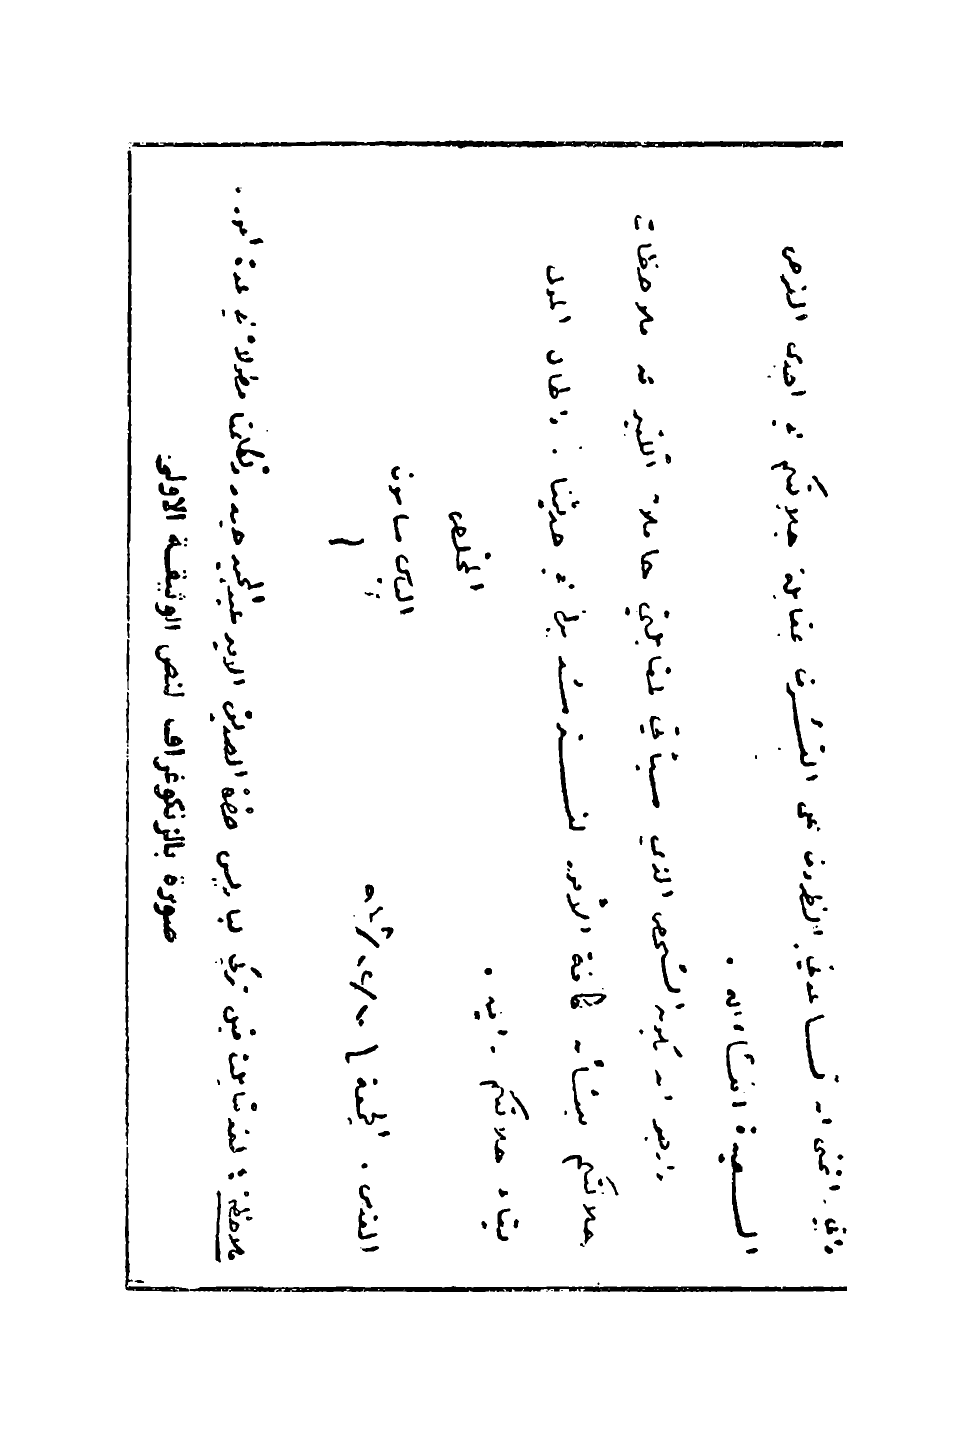 وإني اتمنى ان تساعدني الظروف على التشرف بمقابلة جلالتكم في احدى الفرص
السعيدة انشاء الله .
وارجو ان يكون الشخص الذي سيأتي لمقابلتي حاملا الكثير من ملاحظات
جلالتكم بشأن كافة الأمور لنسترشد بها في حديثنا . واطال المولى
بقاء جلالتكم . آمين .
المخلص
الياس ساسون
القدس . الجمعة
ملاحظة : لقد تباحثت قبل تركي لباريس حضرة الصديق الامير عبد المجيد حيدر وتكلمنا مطولا في عدة امور ..
صورة بالزنكوغراف لنص الوثيقة الاولى